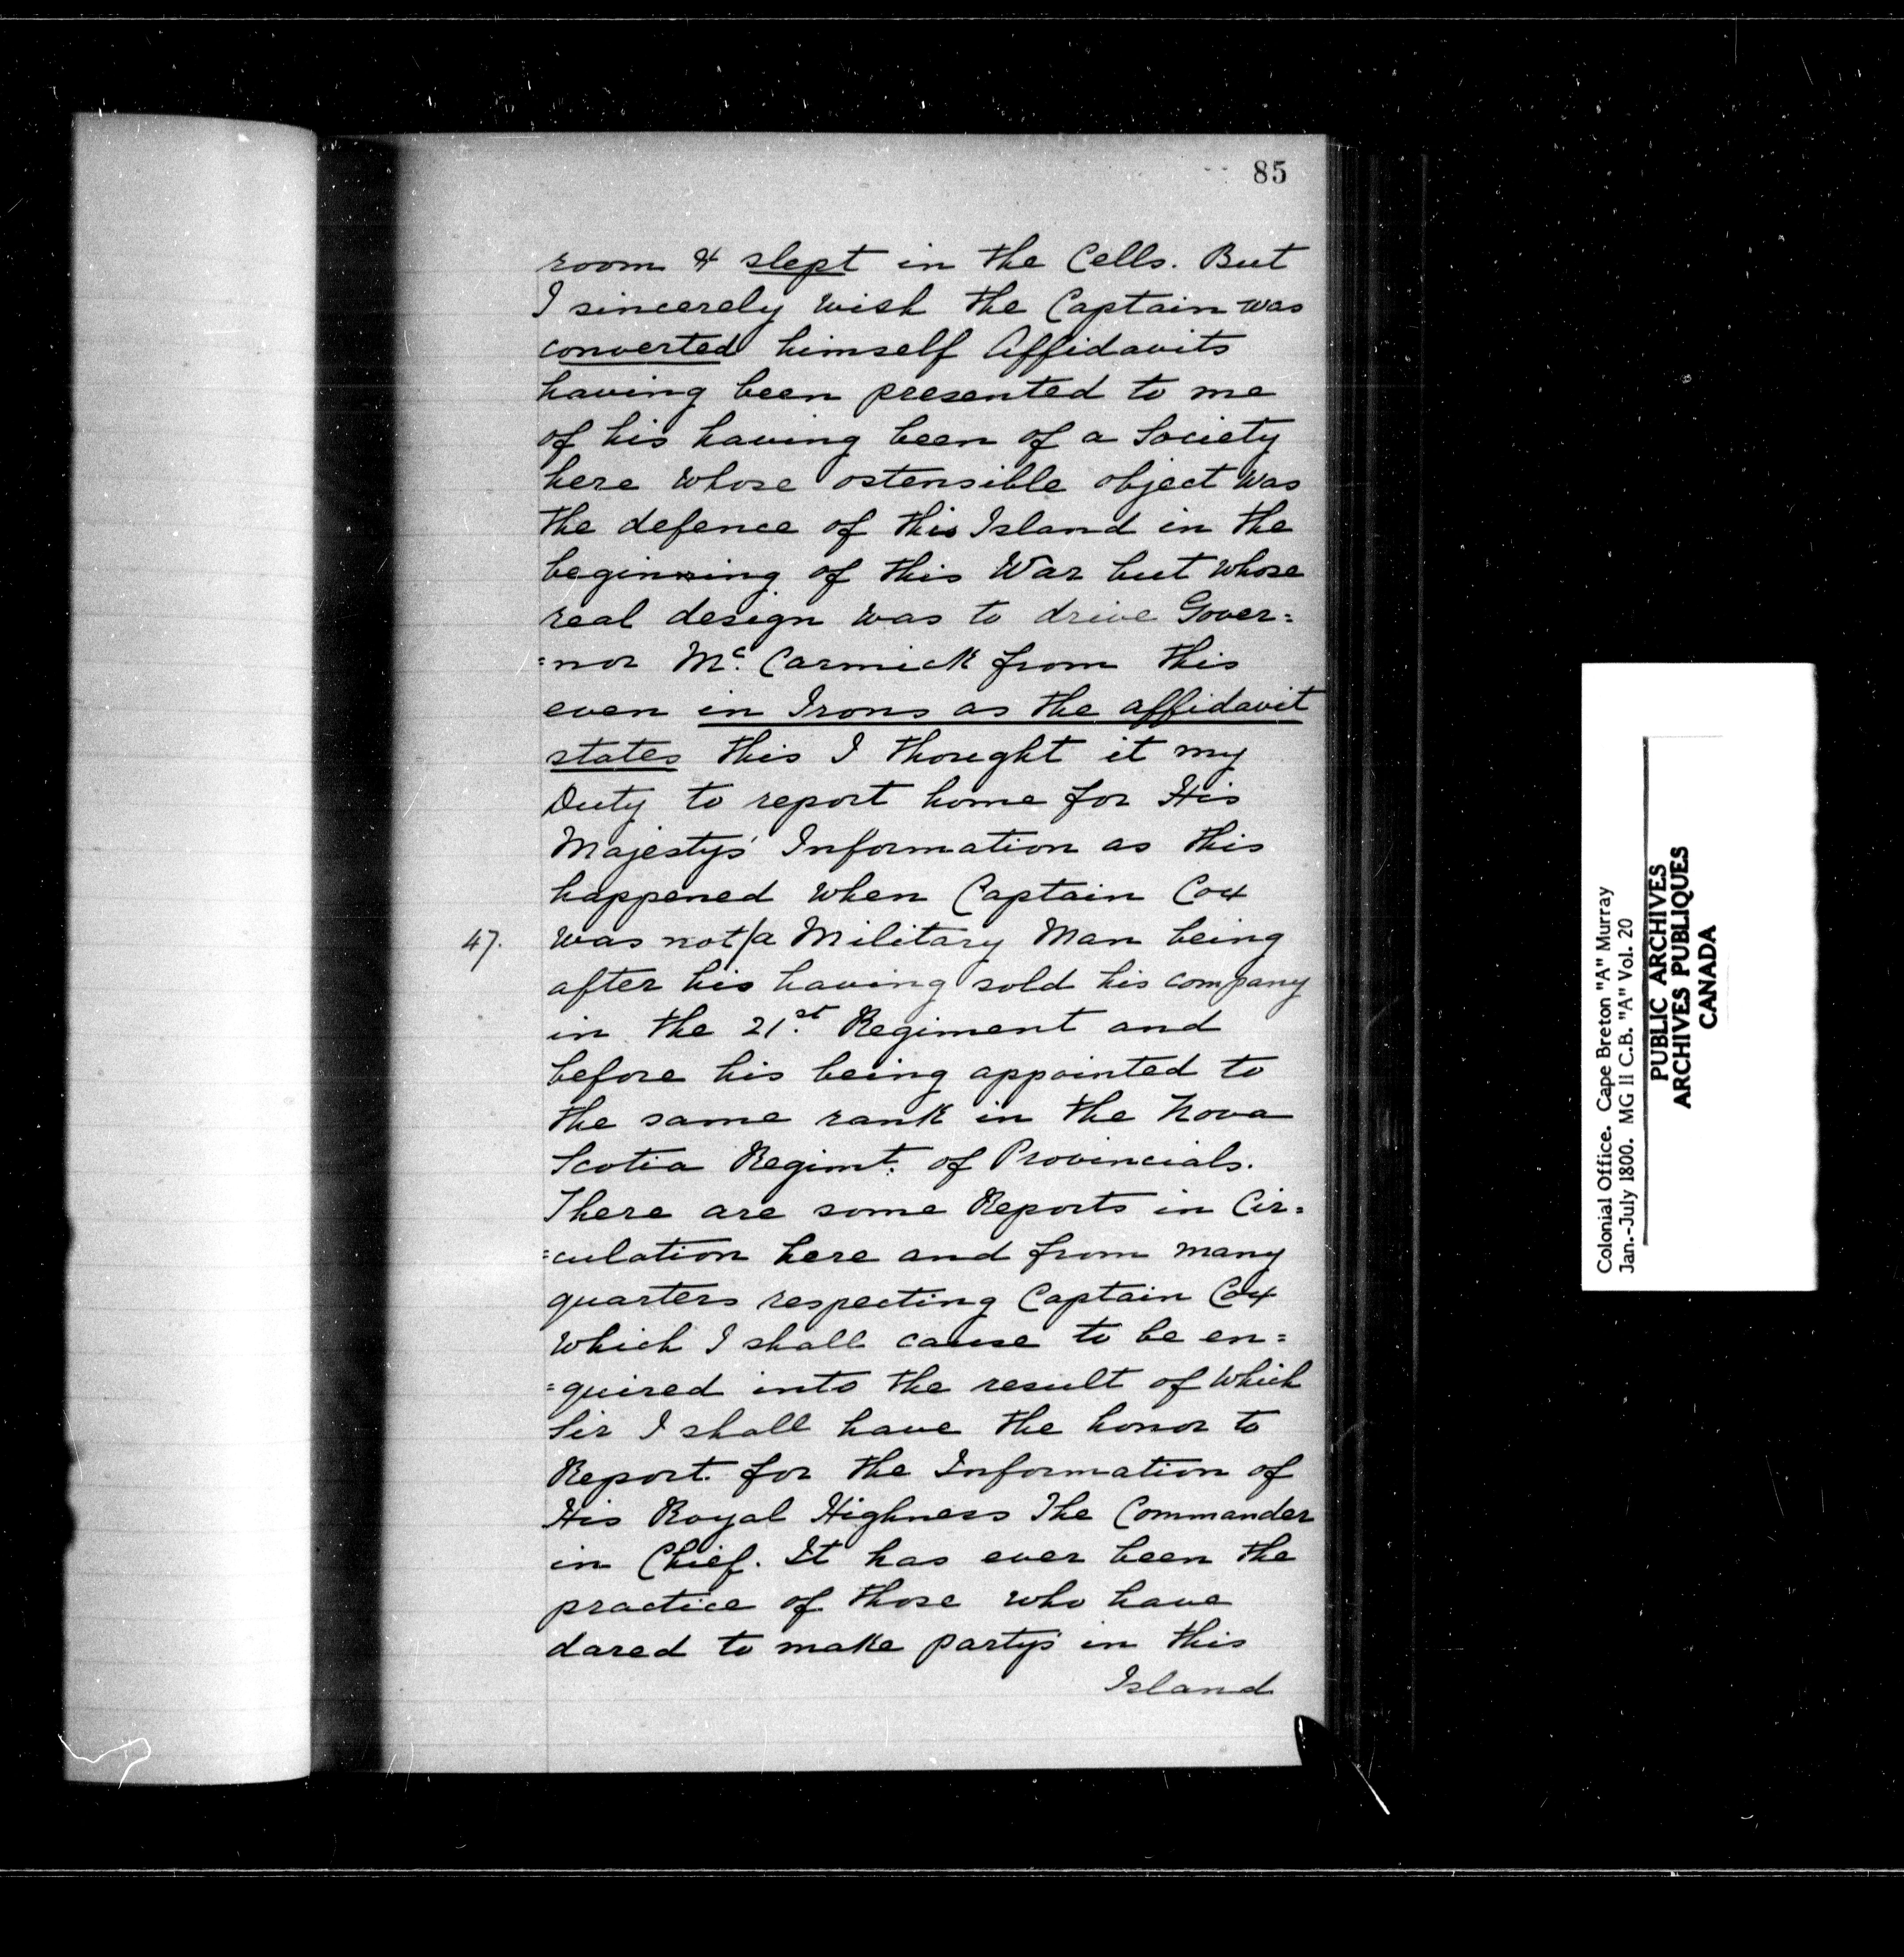 85
room & slept in the Cells. But
I sincerely wish the Captain was
converted himself Affidavits
having been presented to me
of his having been of a Society
here whose ostensible object was
the defence of this Island in the
beginning of this War but whose
real design was to drive Gover=
=nor Mc. Carmick from this
even in Irons as the affidavit
states this I thought it my
Duty to report home for His
Majestys' Information as this
happened when Captain Cox
47. was not/a Military Man being
after his having sold his company
in the 21st. Regiment and
before his being appointed to
the same rank in the Nova
Scotia Regimt. of Provincials.
There are some Reports in Cir=
=culation here and from many
quarters respecting Captain Cox
which I shall cause to be en=
=quired into the result of which
Sir I shall have the honor to
Report for the Information of
His Royal Highness The Commander
in Chief. It has ever been the
practice of those who have
dared to make partys in this
Island
Colonial Office. Cape Breton "A" Murray
Jan.-July 1800. MG II C.B. "A" Vol. 20
PUBLIC ARCHIVES
ARCHIVES PUBLIQUES
CANADA